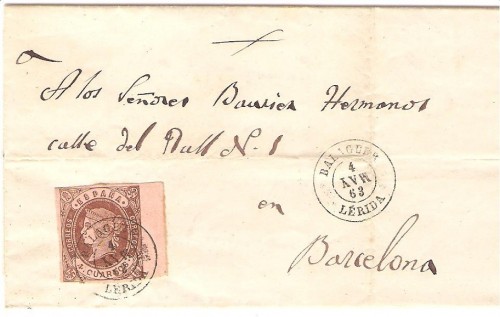 A los Señores Baurier Hermanos
calle del Bull N. 1
BALAGUER
4
AVR
63
LÉRIDA
en
Barcelona
CORREOS ESPAÑA
4 CUARTOS
4
LÉRIDA